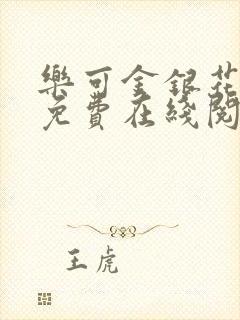 樂可金銀花
免費在綫閱
王虎